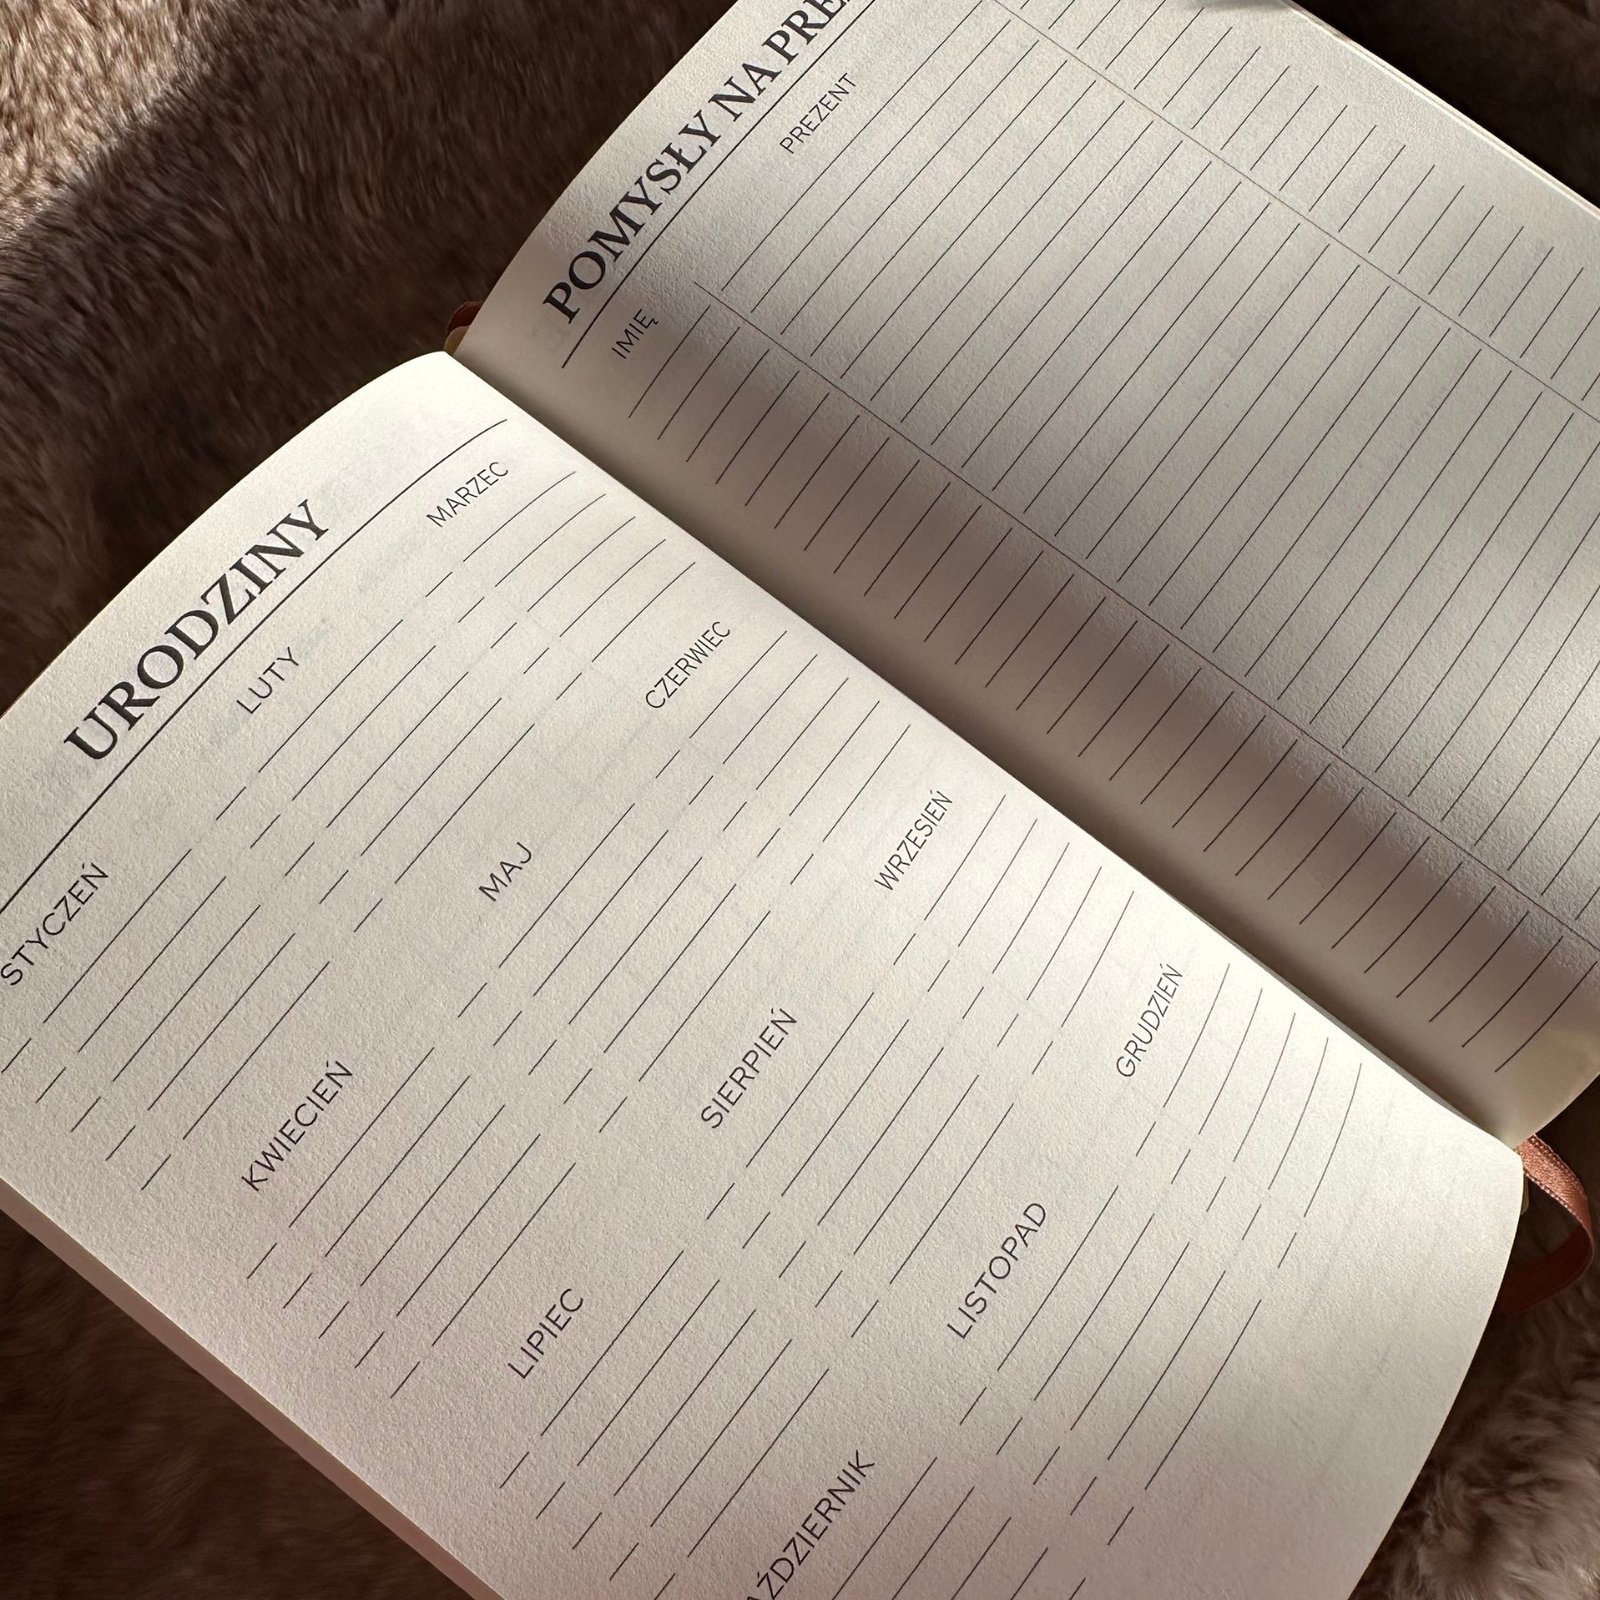 URODZINY
STYCZEŃ LUTY MARZEC
KWIECIEŃ MAJ CZERWIEC
LIPIEC SIERPIEŃ WRZESIEŃ
AŹDZIERNIK LISTOPAD GRUDZIEŃ
POMYSŁY NA PRE
IMIĘ PREZENT